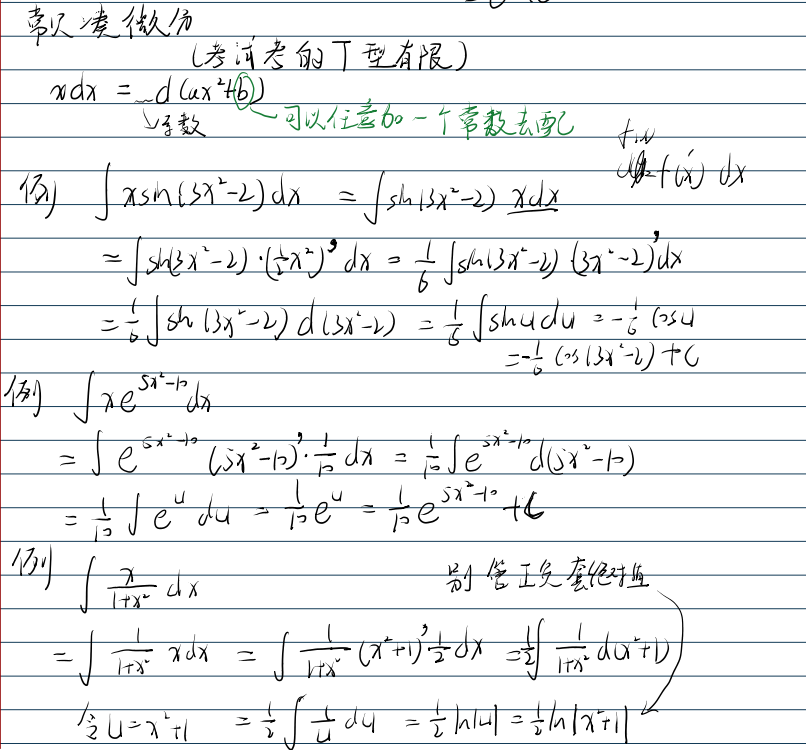 常见凑微分
(考试考的T型有限)
xdx = _ d(ax²+b)
↳系数
可以任意加一个常数去配
f(x)
f'(x) dx
例 ∫xsin(3x²-2)dx = ∫sin(3x²-2) xdx
= ∫sin(3x²-2)·(½x²)' dx = 1/6 ∫sin(3x²-2)·(3x²-2)'dx
= 1/6 ∫sin(3x²-2) d(3x²-2) = 1/6 ∫sinu du = -1/6 cosu
= -1/6 cos(3x²-2)+C
例 ∫xe^(5x²-10)dx
= ∫e^(5x²-10) (5x²-10)'·1/10 dx = 1/10 ∫e^(5x²-10)d(5x²-10)
= 1/10 ∫e^u du = 1/10 e^u = 1/10 e^(5x²-10) +C
例 ∫ x/(1+x²) dx
别管正负套绝对值
= ∫ 1/(1+x²) xdx = ∫ 1/(1+x²) (x²+1)' ½dx = ½∫ 1/(1+x²) d(x²+1)
令u=x²+1 = ½∫ 1/u du = ½ln|u| = ½ln|x²+1|